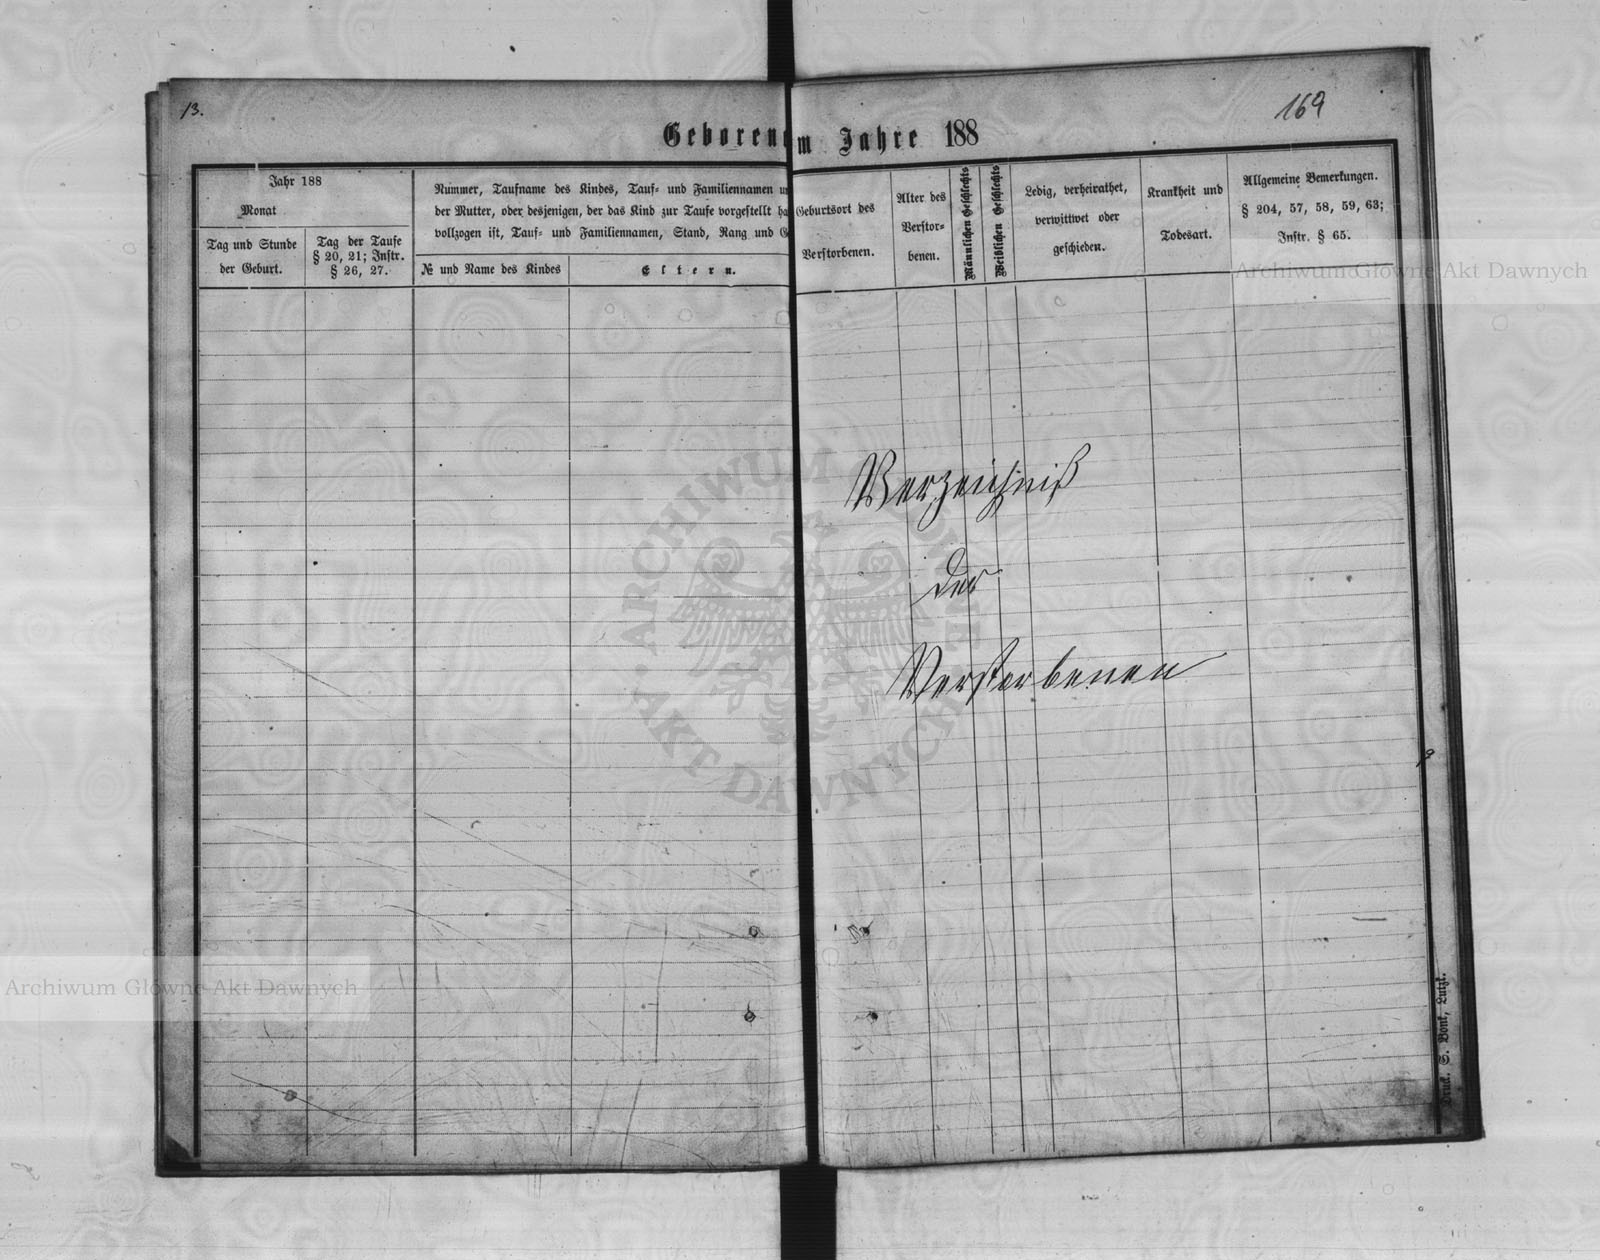 13.
169
Geboren
m Jahre 188
Jahr 188
Monat
Tag und Stunde
der Geburt.
Tag der Taufe
§ 20, 21; Instr.
§ 26, 27.
Nummer, Taufname des Kindes, Tauf- und Familiennamen
der Mutter, oder desjenigen, der das Kind zur Taufe vorgestellt
vollzogen ist, Tauf- und Familiennamen, Stand, Rang und
№ und Name des Kindes
Eltern.
Geburtsort des
Verstorbenen.
Alter des
Verstor-
benen.
Männlichen Geschlechts
Weiblichen Geschlechts
Ledig, verheirathet,
verwittwet oder
geschieden.
Krankheit und
Todesart.
Allgemeine Bemerkungen.
§ 204, 57, 58, 59, 63;
Instr. § 65.
Archiwum Główne Akt Dawnych
Verzeichniß
der
Verstorbenen
ARCHIWUM GŁÓWNE AKT DAWNYCH
Archiwum Główne Akt Dawnych
Druck. S. Bonk, Lutzk.